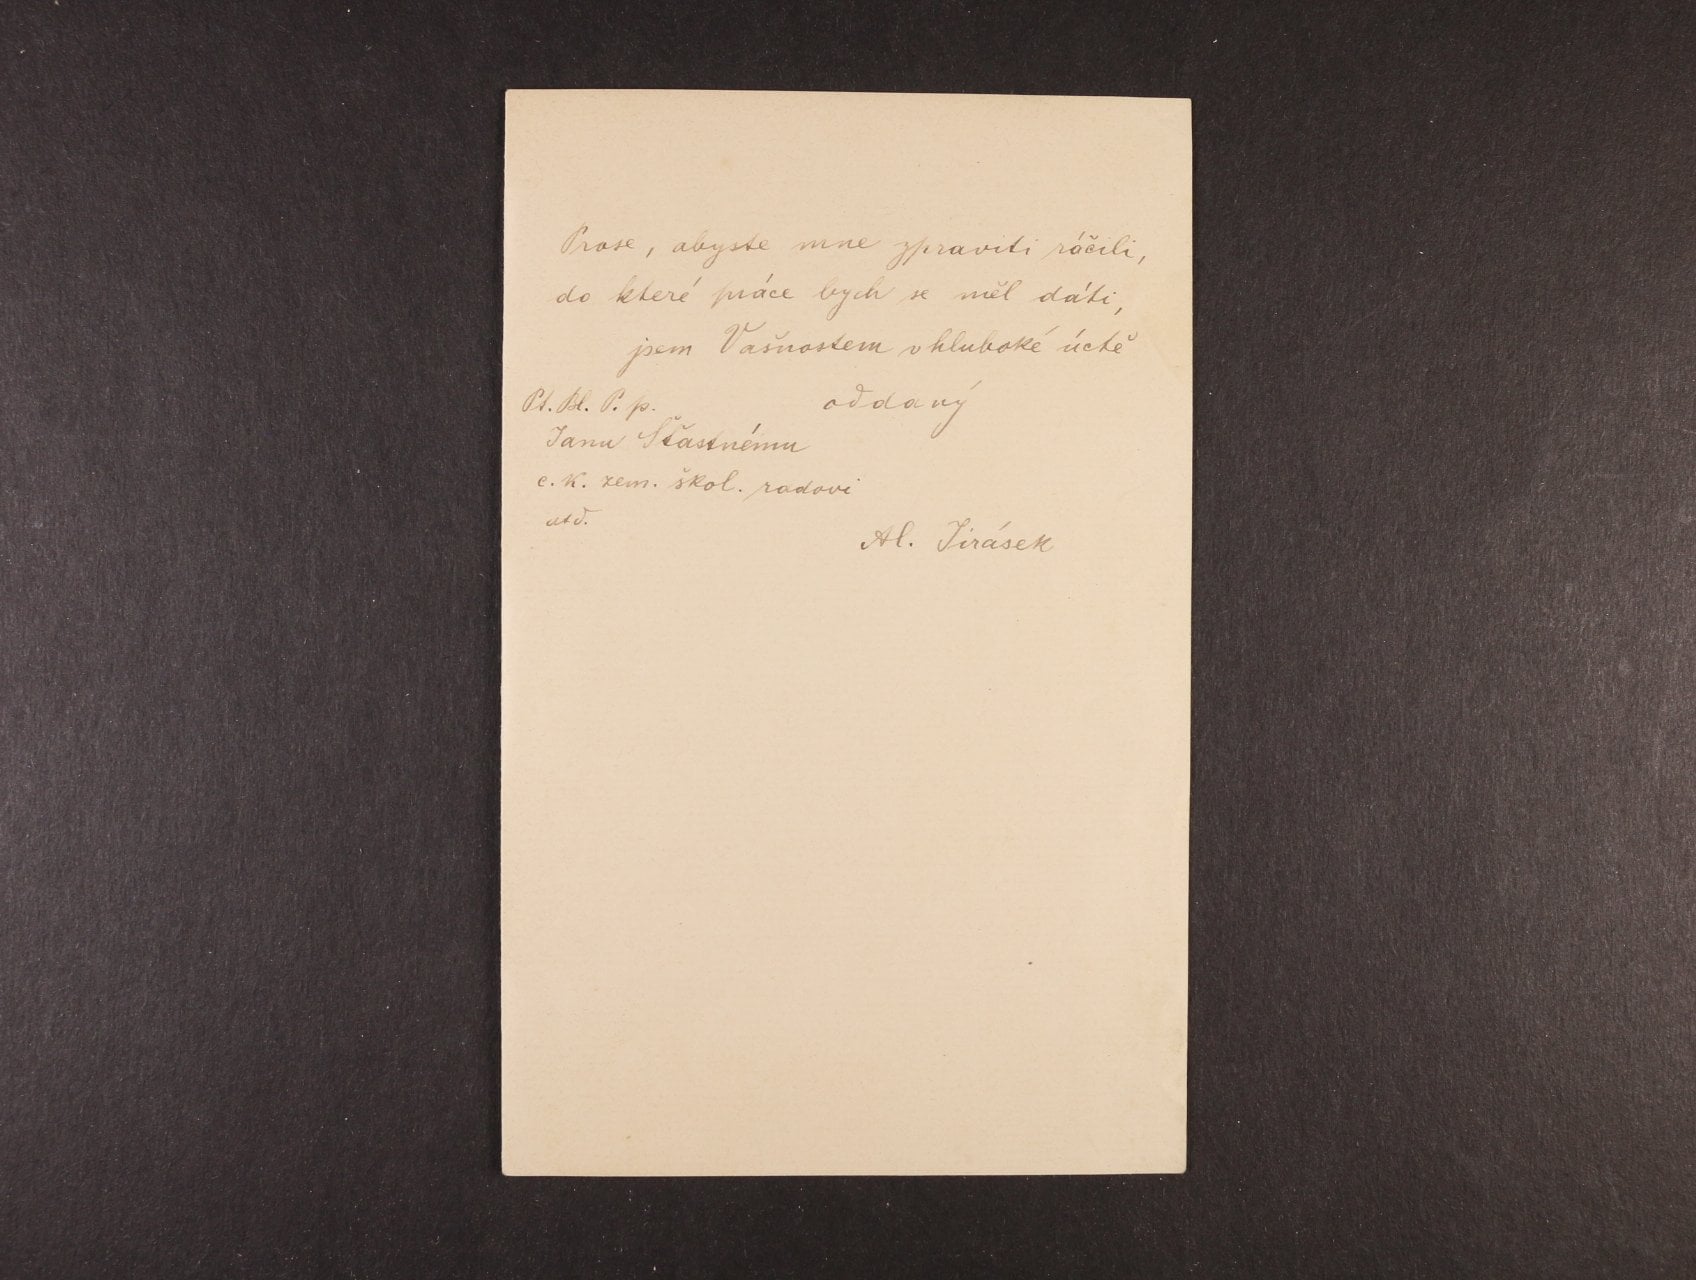 Prose, abyste mne zpraviti ráčili,
do které práce bych se měl dáti,
jsem Vašnostem v hluboké úctě
oddaný
Pt. Bl. P. p.
Janu Šťastnému
c. k. zem. škol. radovi
atd.
Al. Jirásek